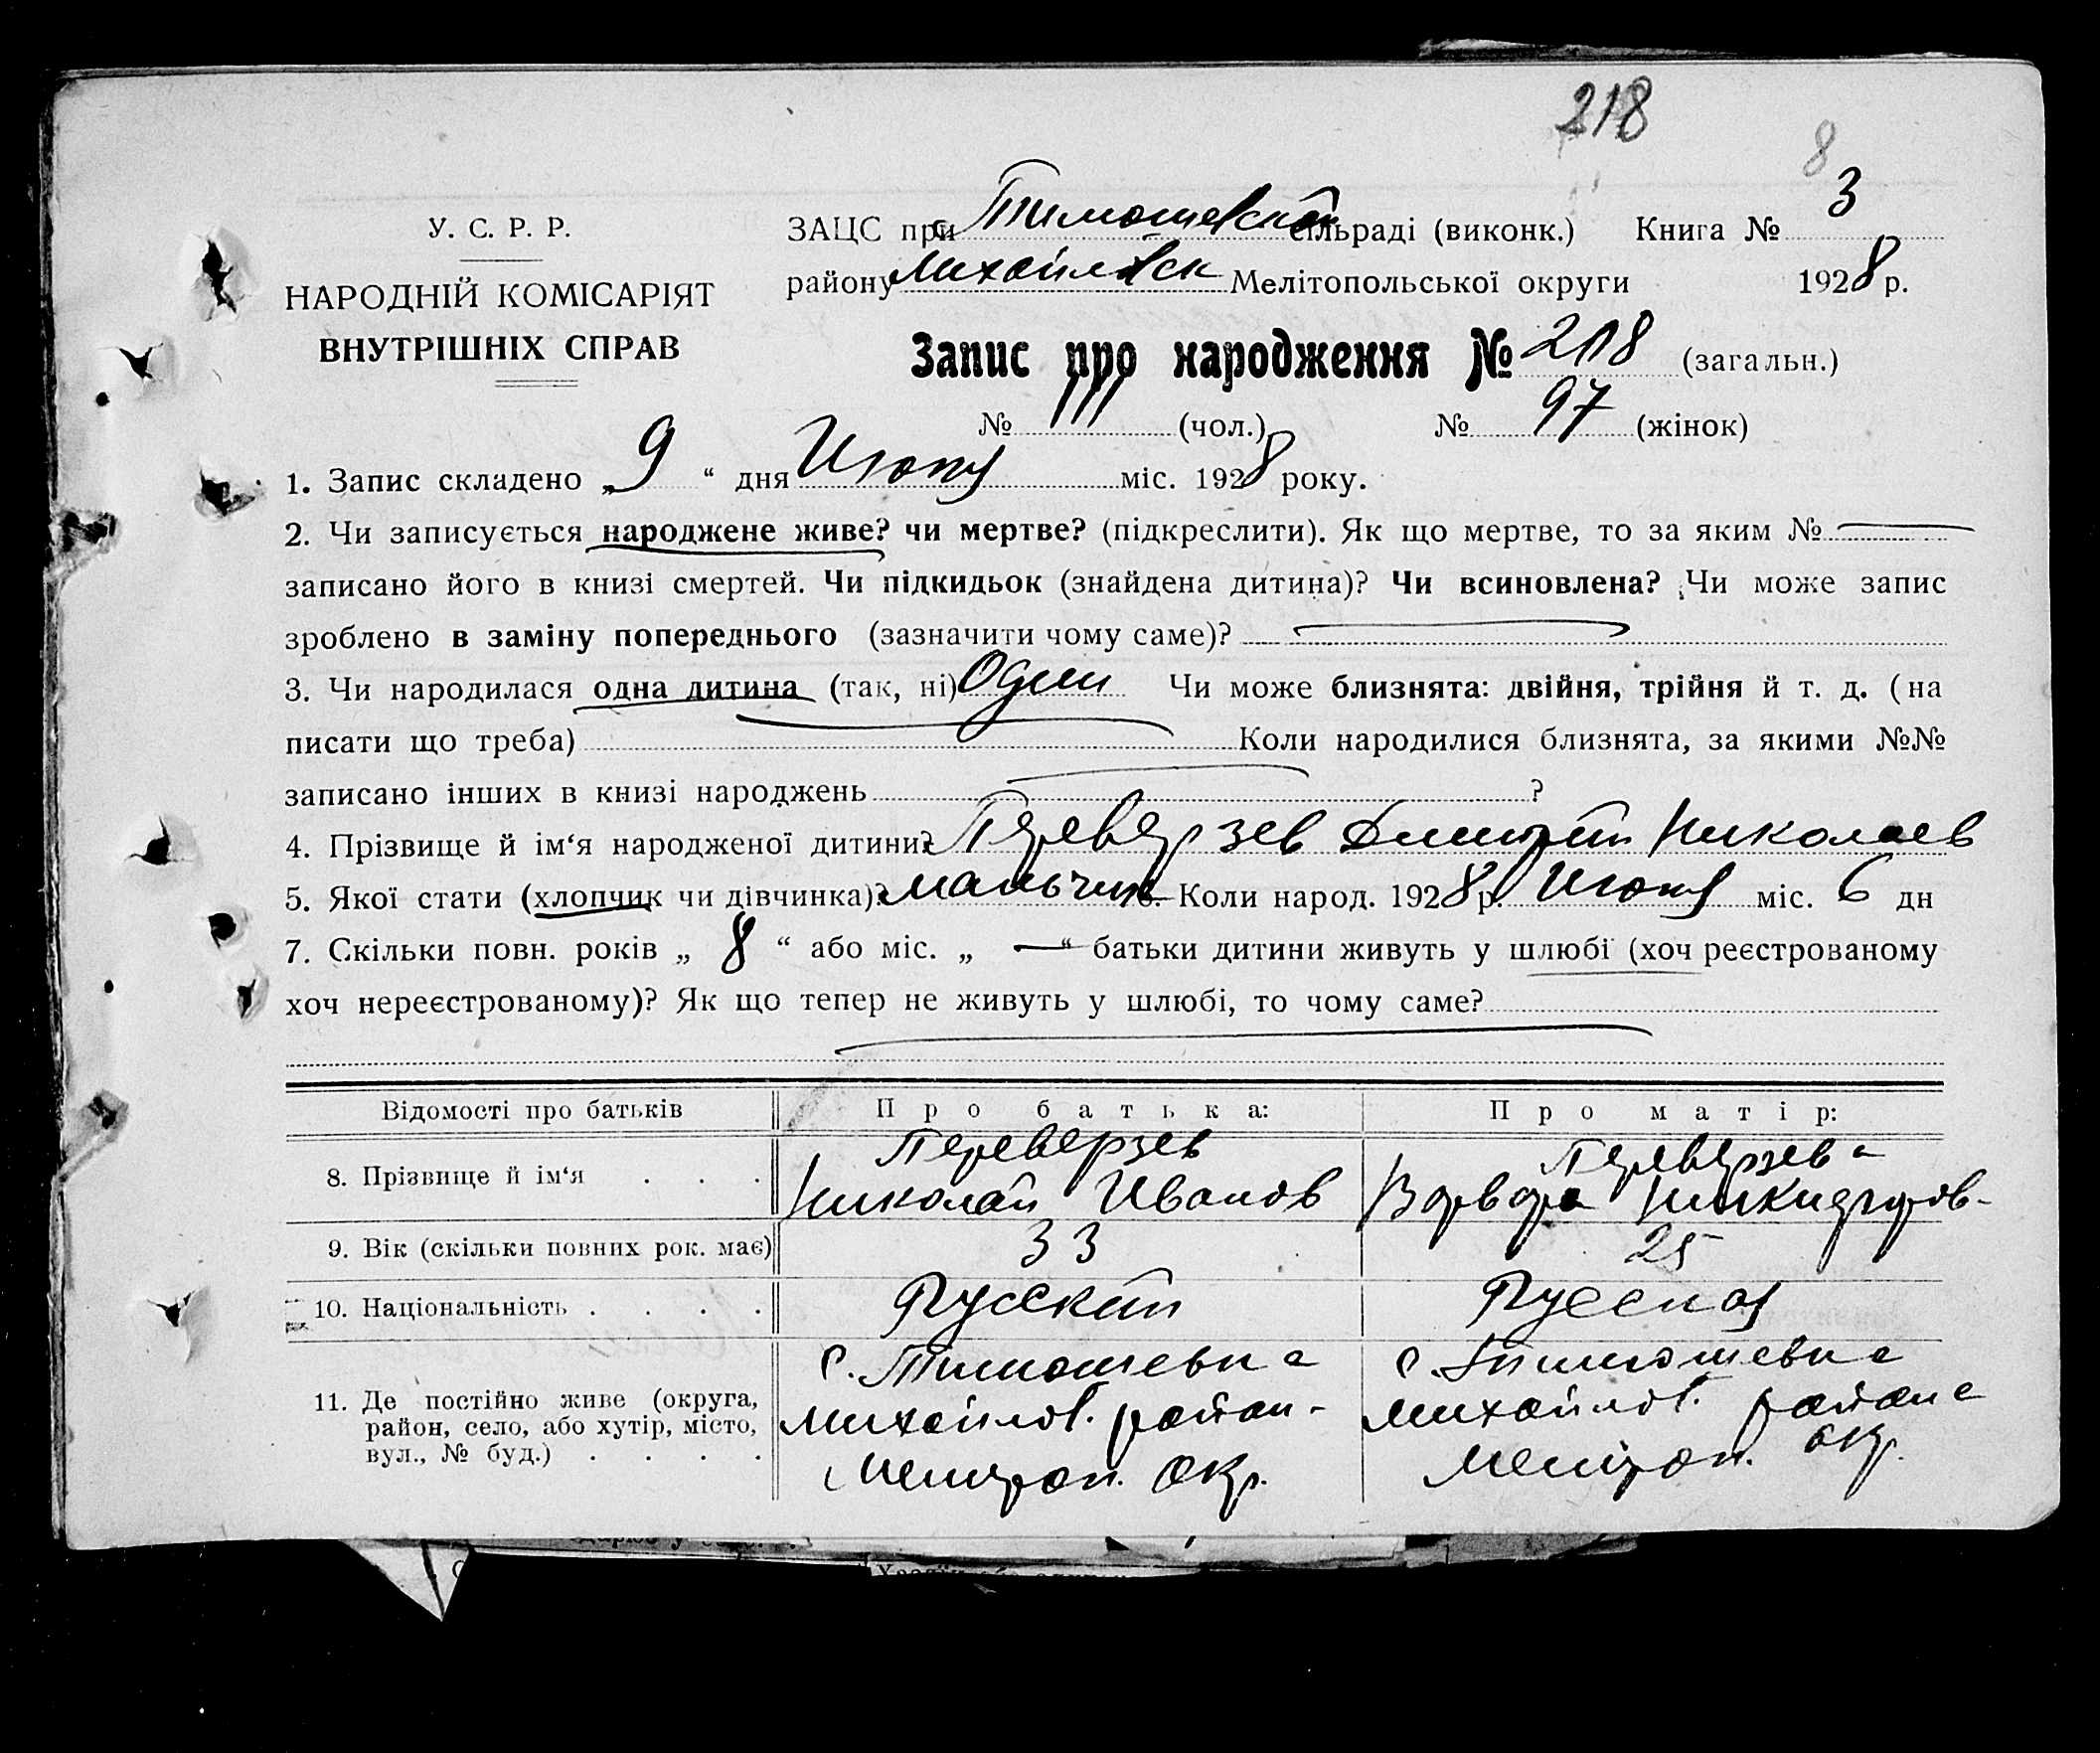 218
8
У. С. Р. Р.
НАРОДНІЙ КОМІСАРІЯТ
ВНУТРІШНІХ СПРАВ
ЗАЦС при Тимошевской сільраді (виконк.) Книга № 3
району Михайлвск Мелітопольської округи 1928 р.
Запис про народження № 218 (загальн.)
№ 111 (чол.) № 97 (жінок)
1. Запис складено „ 9 “ дня Июня міс. 1928 року.
2. Чи записується народжене живе? чи мертве? (підкреслити). Як що мертве, то за яким №
записано його в книзі смертей. Чи підкидьок (знайдена дитина)? Чи всиновлена? Чи може запис
зроблено в заміну попереднього (зазначити чому саме)?
3. Чи народилася одна дитина (так, ні) Один Чи може близнята: двійня, трійня й т. д. (на
писати що треба) Коли народилися близнята, за якими №№
записано інших в книзі народжень ?
4. Прізвище й ім‘я народженої дитини? Переверзев Дмитрий Николаев
5. Якої стати (хлопчик чи дівчинка)? мальчик 6. Коли народ. 1928 р. Июня міс. 6 дн
7. Скільки повн. років „ 8 “ або міс. „ — “ батьки дитини живуть у шлюбі (хоч реєстрованому
хоч нереєстрованому)? Як що тепер не живуть у шлюбі, то чому саме?
Відомості про батьків Про батька: Про матір:
8. Прізвище й ім‘я . . . Переверзев Переверзева
Николай Иванов Варвара
9. Вік (скільки повних рок. має) 33 25
10. Національність . . . . Русский Русская
11. Де постійно живе (округа, с. Тимошевка с. Тимошевка
район, село, або хутір, місто, Михайлов. район- Михайлов. района
вул., № буд.) . . . . Мелитоп. окр. Мелитоп. окр.